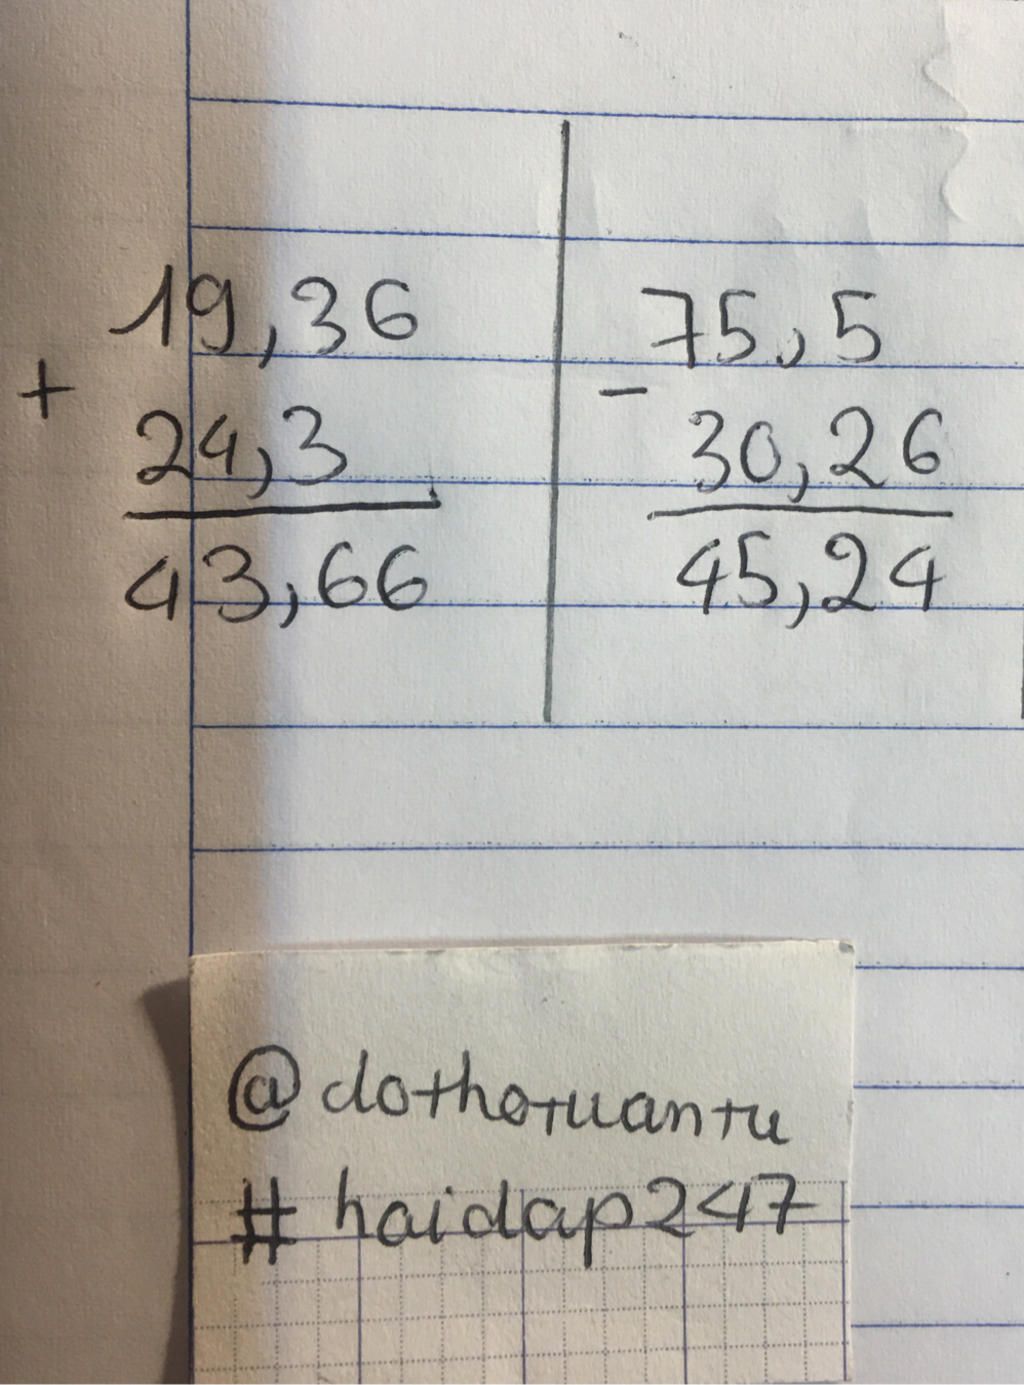 19,36
+
24,3
43,66
75,5
-
30,26
45,24
@dothotuantu
#haidap247